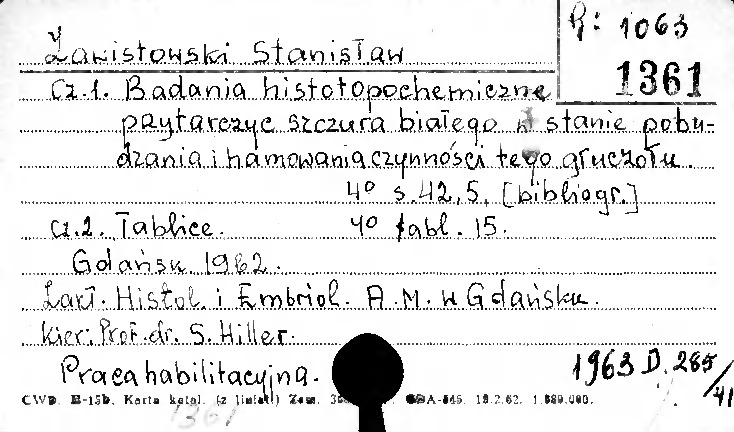 R: 1063
1361
Zawistowski Stanisław
Cz.1. Badania histotopochemiczne
przytarczyc szczura białego w stanie pobu-
dzania i hamowania czynności tego gruczołu.
4° s. 42, 5. [bibliogr.]
Cz.2. Tablice. 4° tabl. 15.
Gdańsk 1962.
Zakł. Histol. i Embriol. A.M. w Gdańsku.
Kier: Prof. dr. S. Hiller.
Praca habilitacyjna.
1963 D. 285/41
CWD. E-15b. Karta katal. (z liniat.) Zam. -545. 19.2.62. 1.680.000.
1361